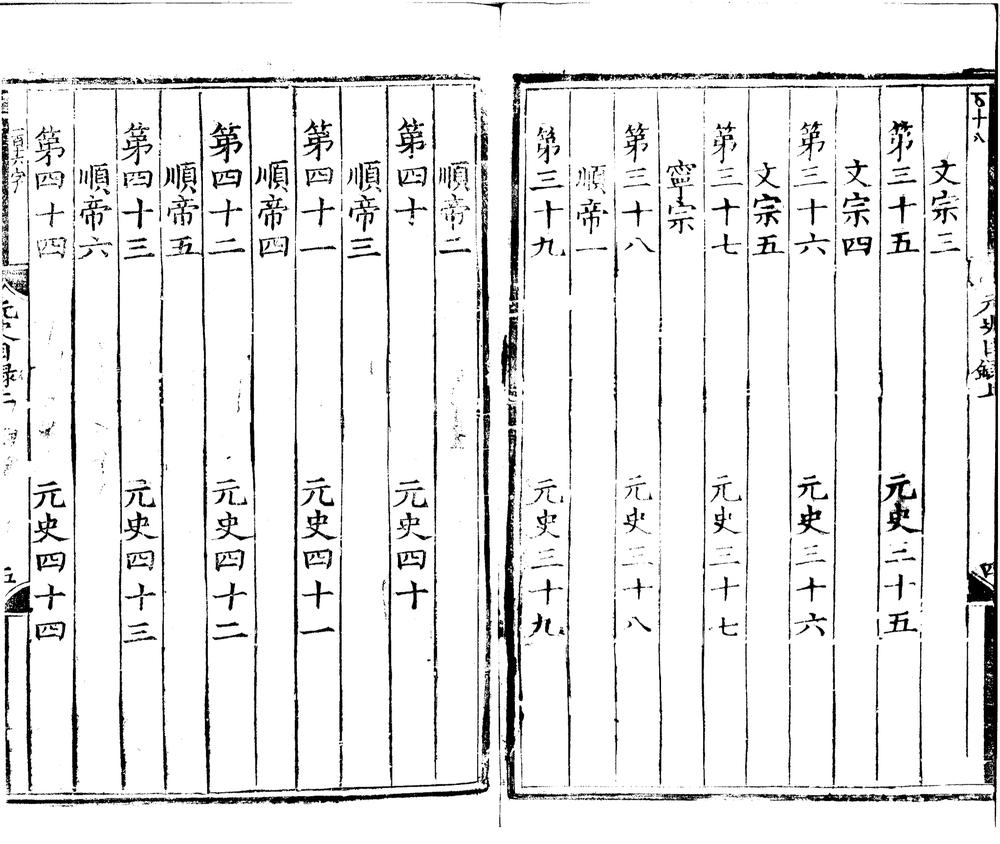 百十八
元史目錄上
四
文宗三
第三十五 元史三十五
文宗四
第三十六 元史三十六
文宗五
第三十七 元史三十七
寧宗
第三十八 元史三十八
順帝一
第三十九 元史三十九
順帝二
第四十 元史四十
順帝三
第四十一 元史四十一
順帝四
第四十二 元史四十二
順帝五
第四十三 元史四十三
順帝六
第四十四 元史四十四
元史目録上
五